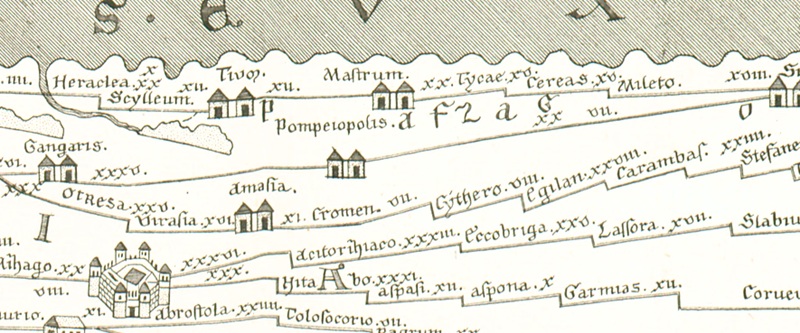 S. E V X
Heraclea. xx
x
Tivoz.
xii.
Mastrum.
xx. Tycae. xv.
Cereas. xv.
Mileto.
xviii.
Scylleum.
P a f z a g o
Pompeiopolis.
xx vii.
Gangaris.
xxxv.
Amasia.
Otresa. xxv.
Virasia. xvi.
xi. Cromen. vii.
Cythero. viii.
Egilan. xxviii.
Carambas. xxiiii.
Stefane
I
acitorihiaco. xxxiii.
Eccobriga. xxv.
Lassora. xvii.
Stabiu
xxxvi.
xxx.
Rihago. xx
viii.
xi.
yita
A
bo. xxxi.
aspasi. xii.
aspona. x
Garmias. xii.
Corveu
abrostola. xxiiii.
Tolosocorio. vii.